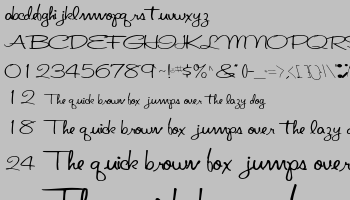 abcdefghijklmnopqrstuvwxyz
ABCDEFGHIJKLMNOPQRS
0123456789
12 The quick brown fox jumps over the lazy dog
18 The quick brown fox jumps over the lazy
24 The quick brown fox jumps over